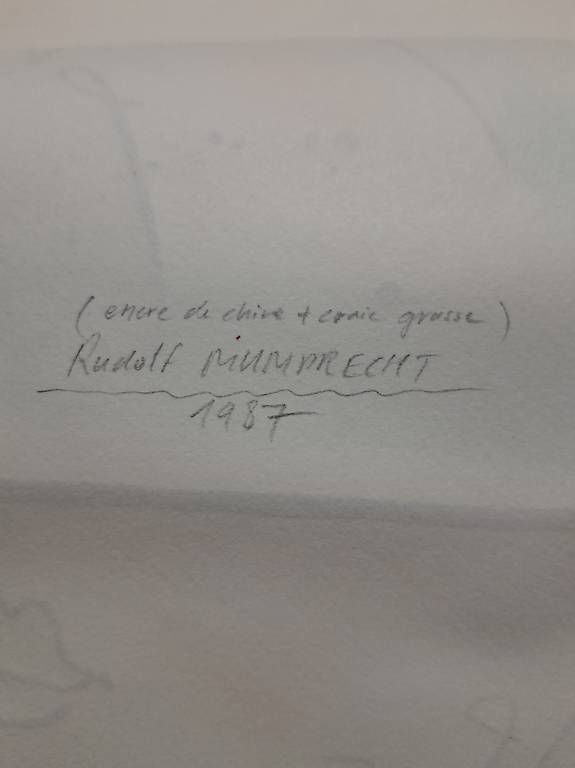 (encre de chine + craie grasse)
Rudolf MUMPRECHT
1987